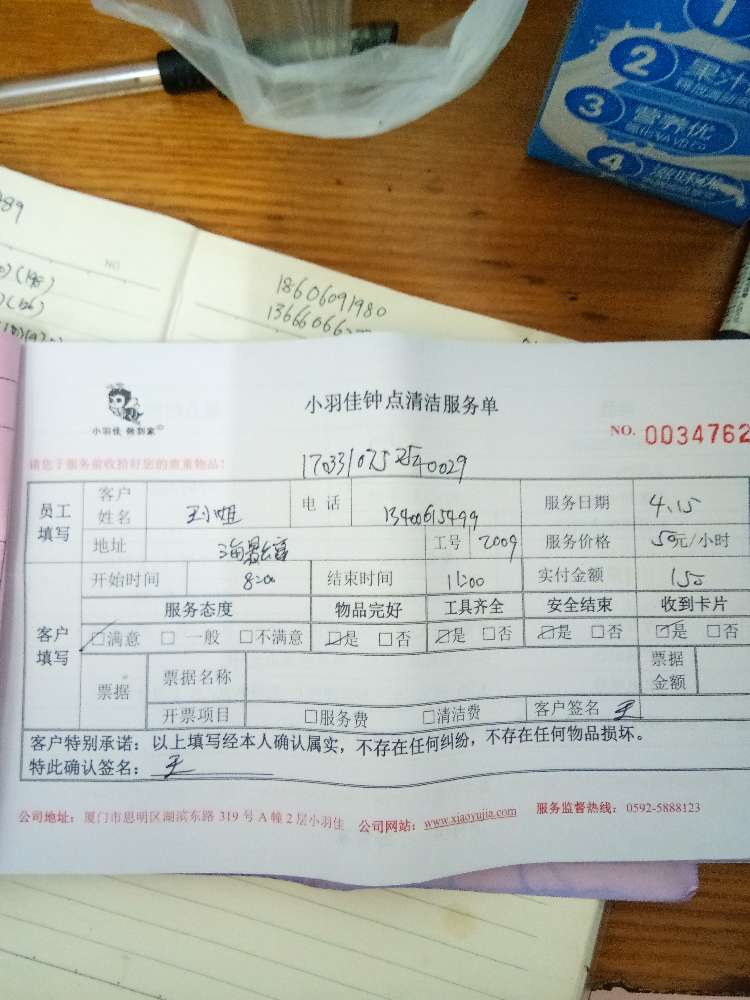 1
2 果汁
3 营养优
4 滋味优
89
NO
18606091980
13666066
小羽佳 做到家
小羽佳钟点清洁服务单
NO. 0034762
请您于服务前收拾好您的贵重物品!
员工填写 客户姓名 王小姐 电话 13400615499 服务日期 4.15
地址 工号 2009 服务价格 50元/小时
客户填写 开始时间 8:00 结束时间 11:00 实付金额 150
服务态度 物品完好 工具齐全 安全结束 收到卡片
□满意 □一般 □不满意 □是 □否 □是 □否 □是 □否 □是 □否
票据 票据名称 票据金额
开票项目 □服务费 □清洁费 客户签名 王
客户特别承诺:以上填写经本人确认属实,不存在任何纠纷,不存在任何物品损坏。
特此确认签名: 王
公司地址:厦门市思明区湖滨东路 319 号 A 幢 2 层小羽佳 公司网站:www.xiaoyujia.com 服务监督热线:0592-5888123